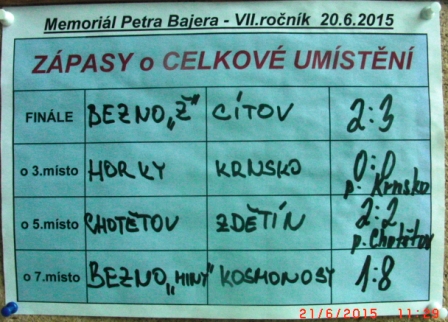 Memoriál Petra Bajera - VII.ročník 20.6.2015
ZÁPASY o CELKOVÉ UMÍSTĚNÍ
FINÁLE BEZNO „Ž" CÍTOV 2:3
o 3.místo HORKY KRNSKO 0:0
p. Krnsko
o 5.místo CHOTĚTOV ZDĚTÍN 2:2
p. Chotětov
o 7.místo BEZNO „MINY" KOSMONOSY 1:8
21/6/2015 11:29